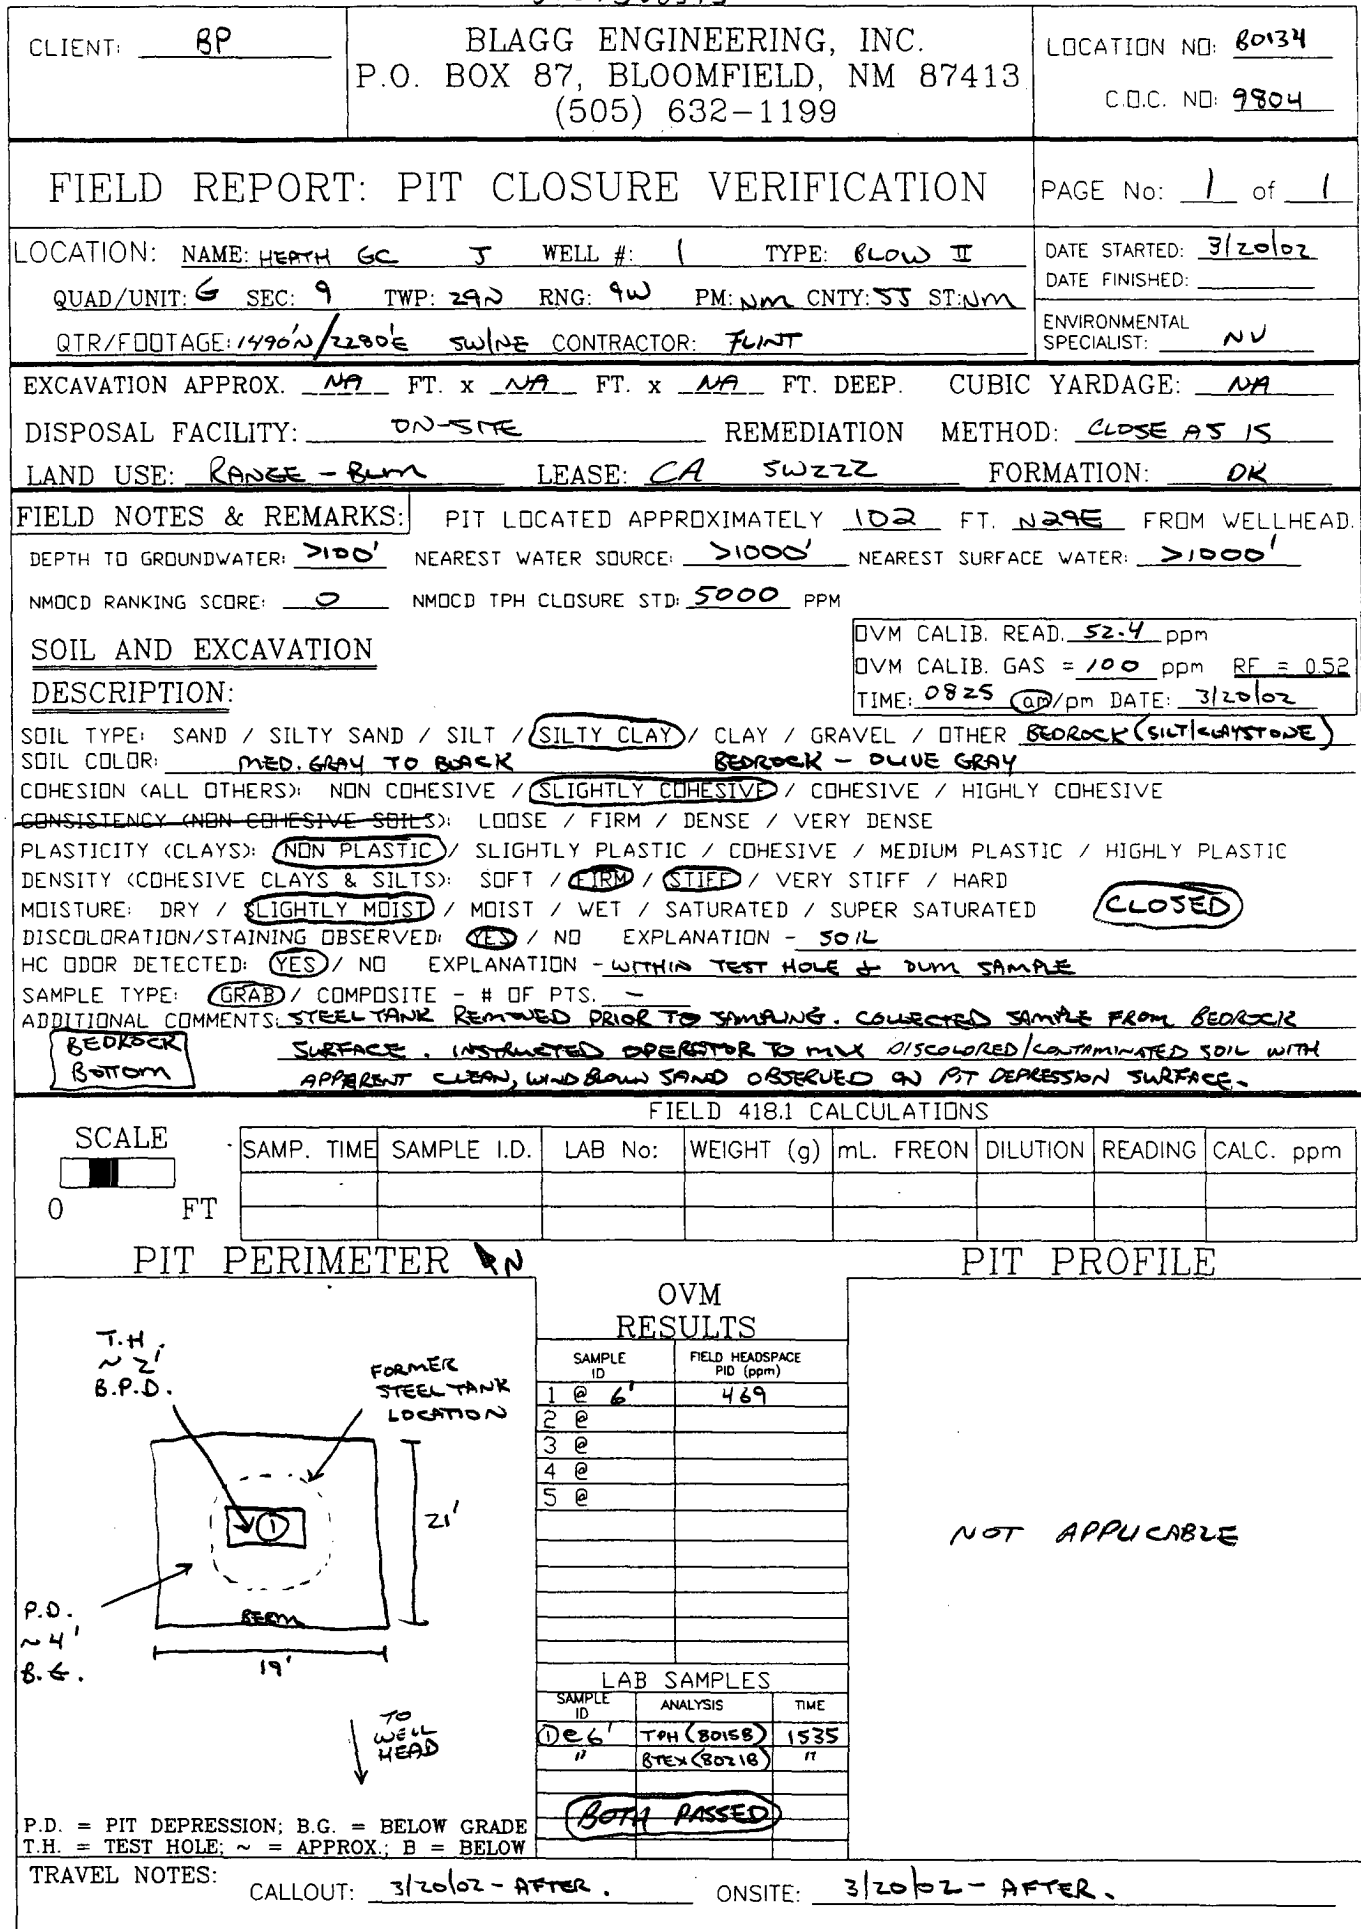 CLIENT: BP
BLAGG ENGINEERING, INC.
P.O. BOX 87, BLOOMFIELD, NM 87413
(505) 632-1199
LOCATION NO: B0134
C.O.C. NO: 9804
FIELD REPORT: PIT CLOSURE VERIFICATION
PAGE No: 1 of 1
LOCATION: NAME: HEATH GC J WELL #: 1 TYPE: BLOW II
QUAD/UNIT: G SEC: 9 TWP: 29N RNG: 9W PM: NM CNTY: SJ ST: NM
QTR/FOOTAGE: 1490'N/2280'E SW/NE CONTRACTOR: FLINT
DATE STARTED: 3/20/02
DATE FINISHED:
ENVIRONMENTAL
SPECIALIST: NV
EXCAVATION APPROX. NA FT. x NA FT. x NA FT. DEEP. CUBIC YARDAGE: NA
DISPOSAL FACILITY: ON-SITE REMEDIATION METHOD: CLOSE AS IS
LAND USE: RANGE - BLM LEASE: CA SW222 FORMATION: DK
FIELD NOTES & REMARKS: PIT LOCATED APPROXIMATELY 102 FT. N29E FROM WELLHEAD.
DEPTH TO GROUNDWATER: >100' NEAREST WATER SOURCE: >1000' NEAREST SURFACE WATER: >1000'
NMOCD RANKING SCORE: 0 NMOCD TPH CLOSURE STD: 5000 PPM
SOIL AND EXCAVATION
DESCRIPTION:
OVM CALIB. READ. 52.4 ppm
OVM CALIB. GAS = 100 ppm RF = 0.52
TIME: 0825 am/pm DATE: 3/20/02
SOIL TYPE: SAND / SILTY SAND / SILT / SILTY CLAY / CLAY / GRAVEL / OTHER BEDROCK (SILT/CLAYSTONE)
SOIL COLOR: MED. GRAY TO BLACK BEDROCK - OLIVE GRAY
COHESION (ALL OTHERS): NON COHESIVE / SLIGHTLY COHESIVE / COHESIVE / HIGHLY COHESIVE
CONSISTENCY (NON COHESIVE SOILS): LOOSE / FIRM / DENSE / VERY DENSE
PLASTICITY (CLAYS): NON PLASTIC / SLIGHTLY PLASTIC / COHESIVE / MEDIUM PLASTIC / HIGHLY PLASTIC
DENSITY (COHESIVE CLAYS & SILTS): SOFT / FIRM / STIFF / VERY STIFF / HARD
MOISTURE: DRY / SLIGHTLY MOIST / MOIST / WET / SATURATED / SUPER SATURATED CLOSED
DISCOLORATION/STAINING OBSERVED: YES / NO EXPLANATION - SOIL
HC ODOR DETECTED: YES / NO EXPLANATION - WITHIN TEST HOLE & OVM SAMPLE
SAMPLE TYPE: GRAB / COMPOSITE - # OF PTS. -
ADDITIONAL COMMENTS: STEEL TANK REMOVED PRIOR TO SAMPLING. COLLECTED SAMPLE FROM BEDROCK
SURFACE. INSTRUCTED OPERATOR TO MIX DISCOLORED/CONTAMINATED SOIL WITH
APPARENT CLEAN, WIND BLOWN SAND OBSERVED ON PIT DEPRESSION SURFACE.
BEDROCK
BOTTOM
FIELD 418.1 CALCULATIONS
SCALE
0 FT
SAMP. TIME SAMPLE I.D. LAB No: WEIGHT (g) mL. FREON DILUTION READING CALC. ppm
PIT PERIMETER N
PIT PROFILE
T.H.
~ 2'
B.P.D.
FORMER
STEEL TANK
LOCATION
1
21'
P.D.
~ 4'
B.G.
BERM
19'
TO
WELL
HEAD
P.D. = PIT DEPRESSION; B.G. = BELOW GRADE
T.H. = TEST HOLE; ~ = APPROX.; B = BELOW
OVM
RESULTS
SAMPLE ID FIELD HEADSPACE PID (ppm)
1 @ 6' 469
2 @
3 @
4 @
5 @
LAB SAMPLES
SAMPLE ID ANALYSIS TIME
① @ 6' TPH (8015B) 1535
" BTEX (8021B) "
BOTH PASSED
NOT APPLICABLE
TRAVEL NOTES: CALLOUT: 3/20/02 - AFTER. ONSITE: 3/20/02 - AFTER.